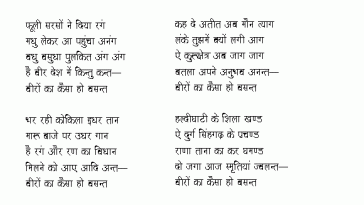 फूली सरसों ने दिया रंग
मधु लेकर आ पहुंचा अनंग
वधु वसुधा पुलकित अंग अंग
है वीर वेश में किन्तु कन्त—
वीरों का कैसा हो वसन्त
भर रही कोकिला इधर तान
मारू बाजे पर उधर गान
है रंग और रण का विधान
मिलने को आए आदि अन्त—
वीरों का कैसा हो वसन्त
कह दे अतीत अब मौन त्याग
लंके तुझमें क्यों लगी आग
ऐ कुरुक्षेत्र अब जाग जाग
बतला अपने अनुभव अनन्त—
वीरों का कैसा हो वसन्त
हल्दीघाटी के शिला खण्ड
ऐ दुर्ग सिंहगढ़ के प्रचण्ड
राणा ताना का कर घमण्ड
दो जगा आज स्मृतियां ज्वलन्त—
वीरों का कैसा हो वसन्त